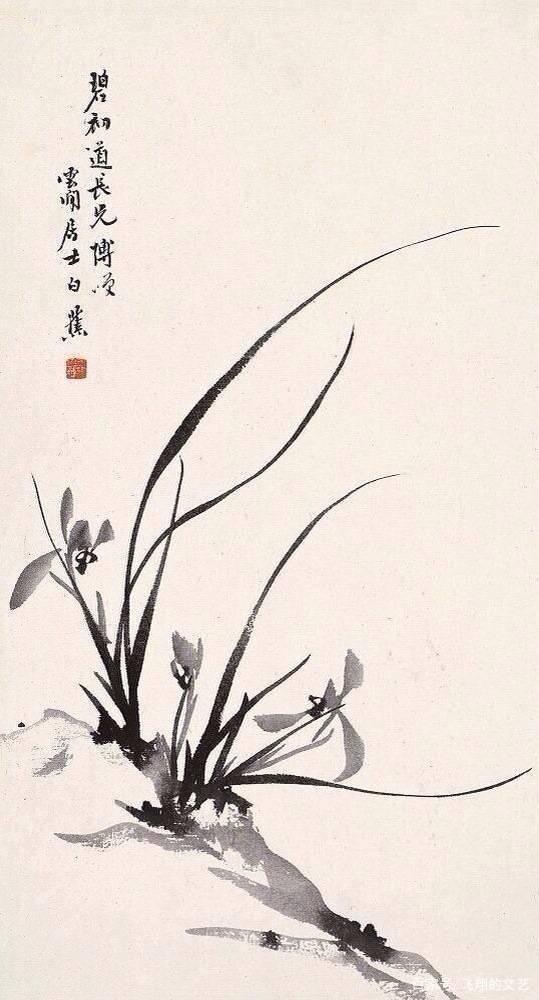 碧初道長兄博唉
雲間居士白蕉
百家号/飞翔的文艺